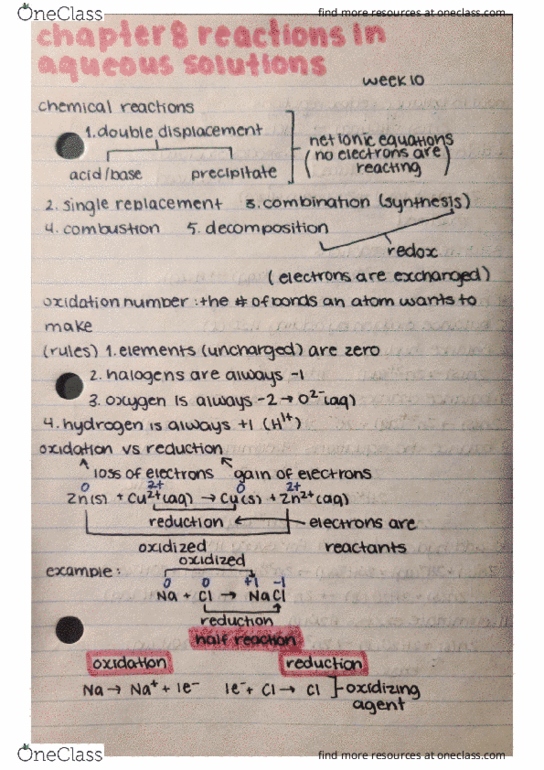 OneClass
find more resources at oneclass.com
chapter 8 reactions in
aqueous solutions
week 10
chemical reactions
1. double displacement
net ionic equations
(no electrons are
reacting)
acid/base precipitate
2. single replacement 3. combination (synthesis)
4. combustion 5. decomposition
redox
(electrons are exchanged)
oxidation number : the # of bonds an atom wants to
make
(rules) 1. elements (uncharged) are zero
2. halogens are always -1
3. oxygen is always -2 → O²⁻(aq)
4. hydrogen is always +1 (H¹⁺)
oxidation vs reduction
loss of electrons gain of electrons
0 2+ 0 2+
Zn(s) + Cu²⁺(aq) → Cu(s) + Zn²⁺(aq)
reduction ← electrons are
oxidized reactants
oxidized
example:
0 0 +1 -1
Na + Cl → NaCl
reduction
half reaction
oxidation reduction
Na → Na⁺ + 1e⁻ 1e⁻ + Cl → Cl ] oxidizing
agent
OneClass
find more resources at oneclass.com